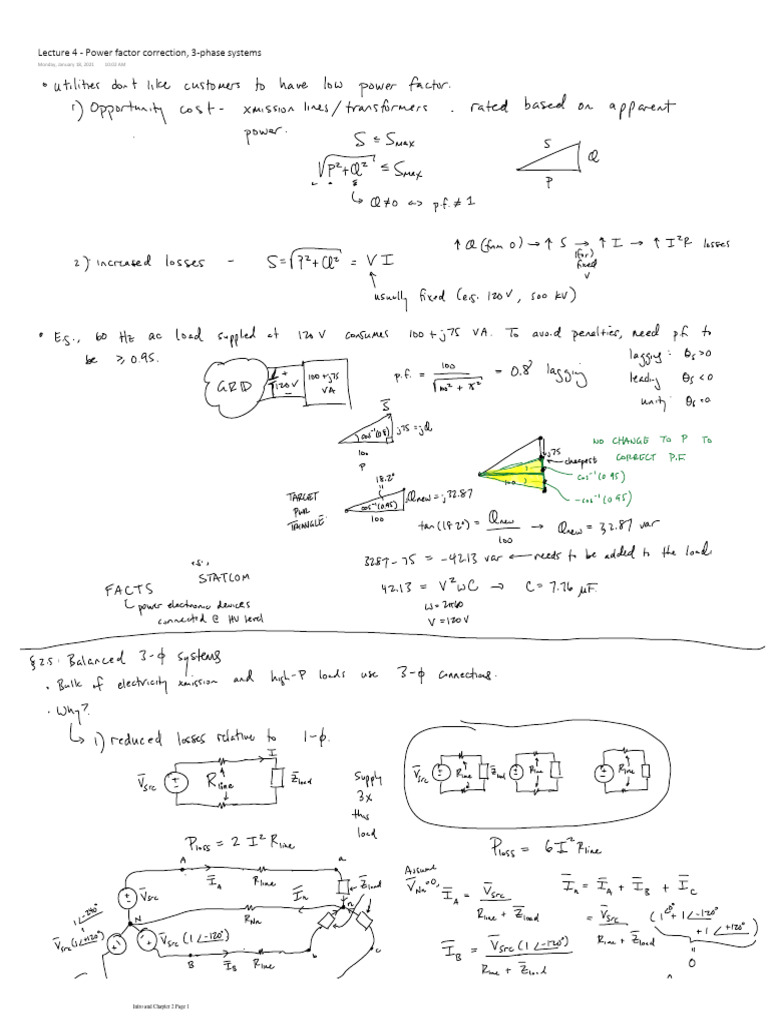 Lecture 4 - Power factor correction, 3-phase systems
Monday, January 18, 2021 10:03 AM
• utilities don't like customers to have low power factor.
1) Opportunity cost - xmission lines/transformers. rated based on apparent
power.
S ≤ Smax
√P²+Q² ≤ Smax
↳ Q≠0 ⇔ p.f. ≠ 1
S
Q
P
2) increased losses - S=√P²+Q² = VI
↑Q (from 0) → ↑S → ↑I → ↑I²R losses
(for)
fixed
V
usually fixed (e.g. 120V, 500 kV)
• E.g., 60 Hz ac load supplied at 120V consumes 100+j75 VA. To avoid penalties, need p.f. to
be ≥ 0.95.
GRID
+
120V
-
100+j75
VA
p.f. = 100 / √100² + 75² = 0.8 lagging
lagging: θs>0
leading θs<0
unity: θs=0
S̄
cos⁻¹(0.8)
j75=jQ
100
P
NO CHANGE TO P TO
CORRECT P.F
j75
cheapest
cos⁻¹(0.95)
-cos⁻¹(0.95)
100
TARGET
PWR
TRIANGLE
18.2°
cos⁻¹(0.95)
Qnew=j32.87
100
tan(18.2°) = Qnew / 100 → Qnew = 32.87 var
32.87 - 75 = -42.13 var ← needs to be added to the load
e.g.,
STATCOM
FACTS
↳ power electronic devices
connected @ HV level
42.13 = V²ωC → C = 7.76 μF.
ω=2π60
V=120V
§2.5: Balanced 3-φ systems
• Bulk of electricity xmission and high-P loads use 3-φ connections.
• Why?
↳ 1) reduced losses relative to 1-φ.
I
V̄src
Rline
Z̄load
Supply
3x
this
load
V̄src
Rline
Z̄load
Rline
Rline
Ploss = 2 I² Rline
Ploss = 6I² Rline
A
ĪA
Rline
a
Z̄load
V̄src
Īn
n
N
RNn
1∠-240°
V̄src(1∠+120°)
V̄src(1∠-120°)
B
ĪB
Rline
b
c
Assume
V̄Nn=0,
ĪA = V̄src / Rline + Z̄load
ĪB = V̄src(1∠-120°) / Rline + Z̄load
Īn = ĪA + ĪB + ĪC
= V̄src / Rline + Z̄load (1∠0° + 1∠-120°
+ 1∠+120°)
0
Intro and Chapter 2 Page 1